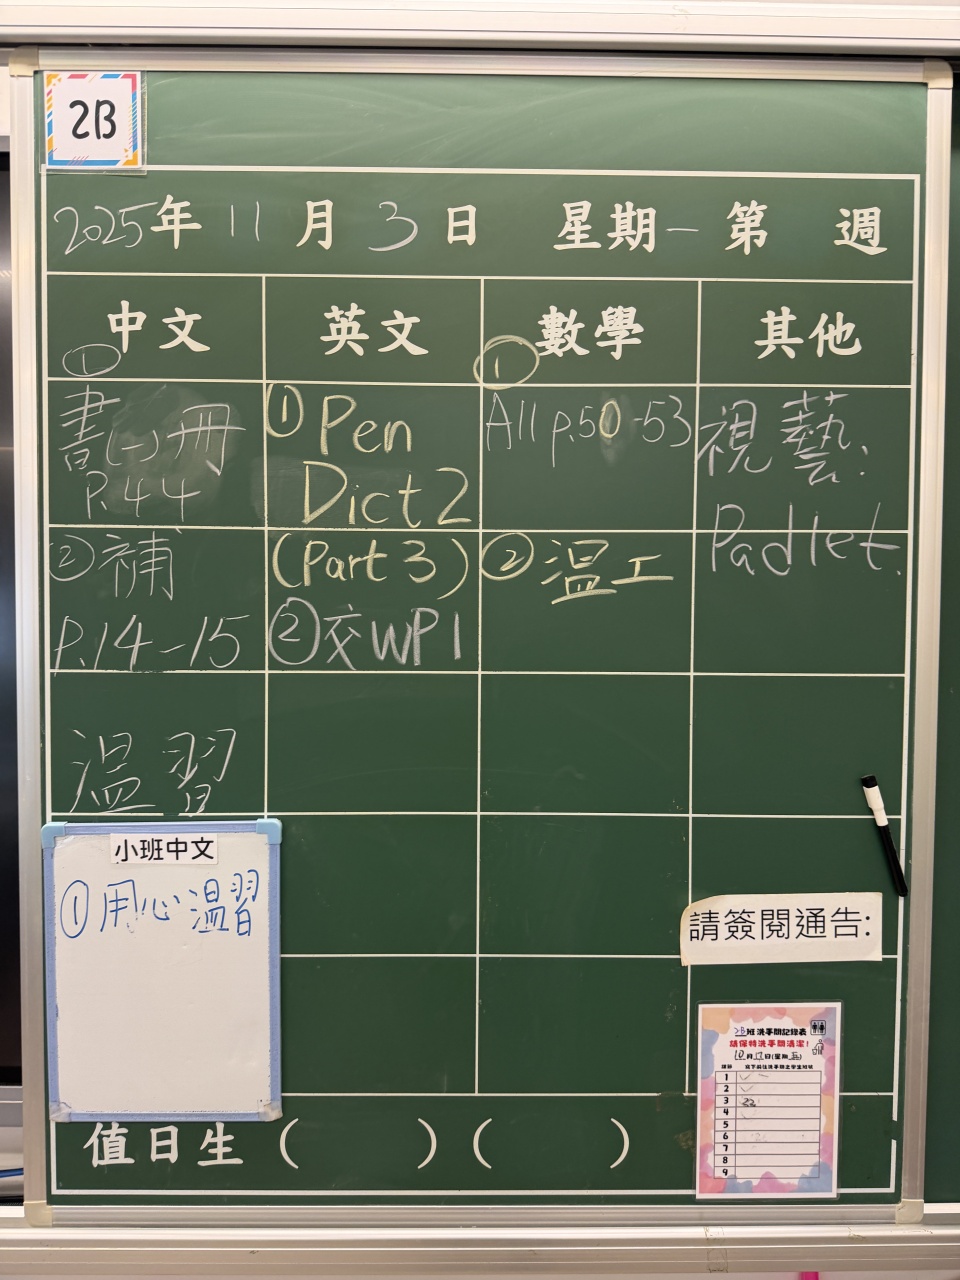 2B
2025年11月3日 星期一 第 週
中文 英文 數學 其他
①
書(一)冊
P.44
②補
P.14-15
溫習
①Pen
Dict 2
(Part 3)
②交WP1
①
A11 p.50-53
②溫工
視藝:
Padlet.
小班中文
①用心溫習
請簽閱通告:
2B班洗手間記錄表
請保持洗手間清潔!
10月17日(星期五)
課節 寫下前往洗手間之學生班號
1
2
3
4
5
6
7
8
9
值日生 ( ) ( )